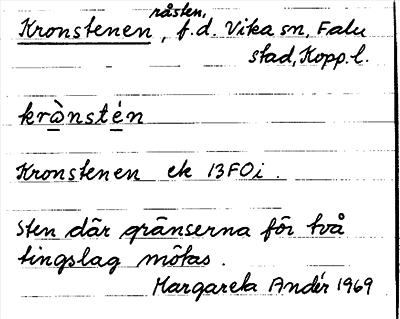 råsten,
Kronstenen, f.d. Vika sn, Falu
stad, Kopp. l.
krònstén
Kronstenen ek 13F0i.
Sten där gränserna för två
tingslag mötas.
Margareta Andér 1969